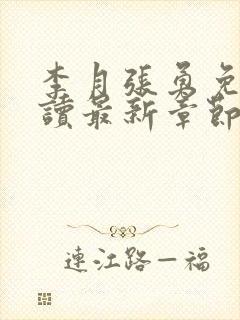 李月張勇免
讀最新章節
連江路—福